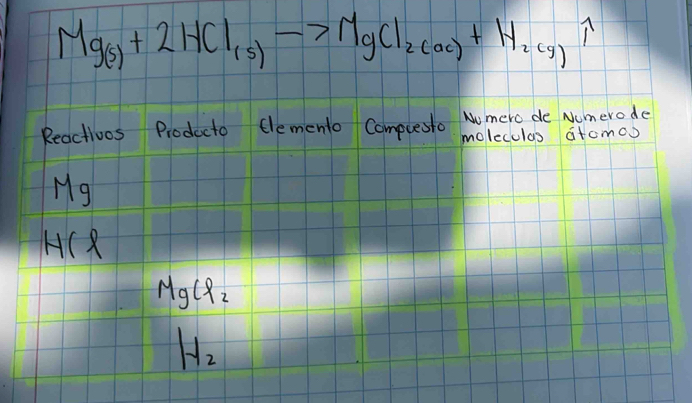 Mg(s) + 2HCl(s) —> MgCl2(ac) + H2(g) ↑
Reactivos Producto Elemento Compuesto Numero de moleculas Numero de átomos
Mg
HCl
MgCl2
H2